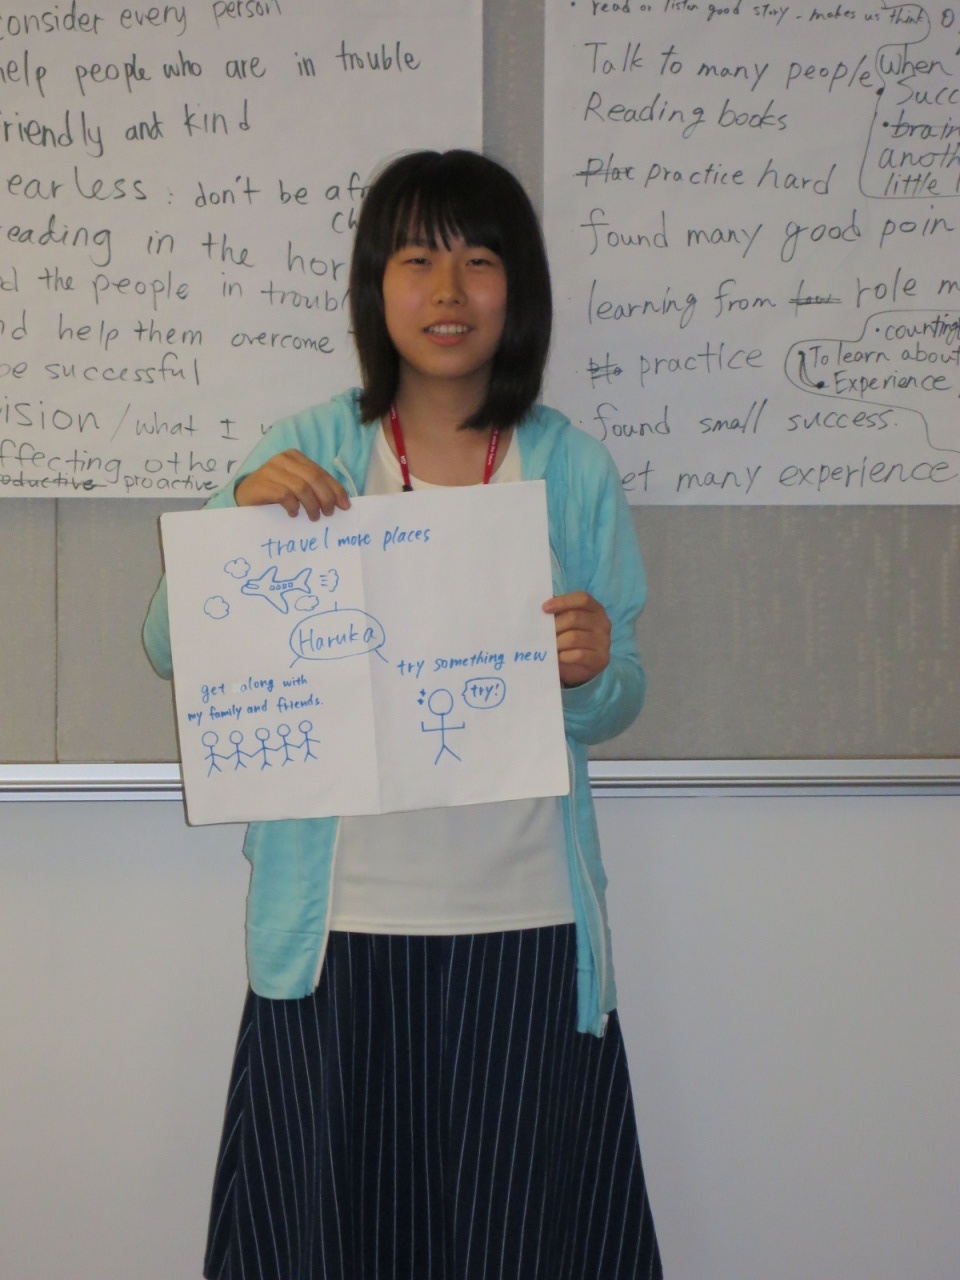 consider every person
help people who are in trouble
friendly and kind
fearless : don't be
in the
the people in
help them overcome
be successful
vision / what I
proactive
read or listen good story - makes us think
Talk to many people
When
Reading books
practice hard
found many good
learning from role
practice
To learn about
Experience
found small success.
many experience
travel more places
Haruka
try something new
try!
get along with
my family and friends.